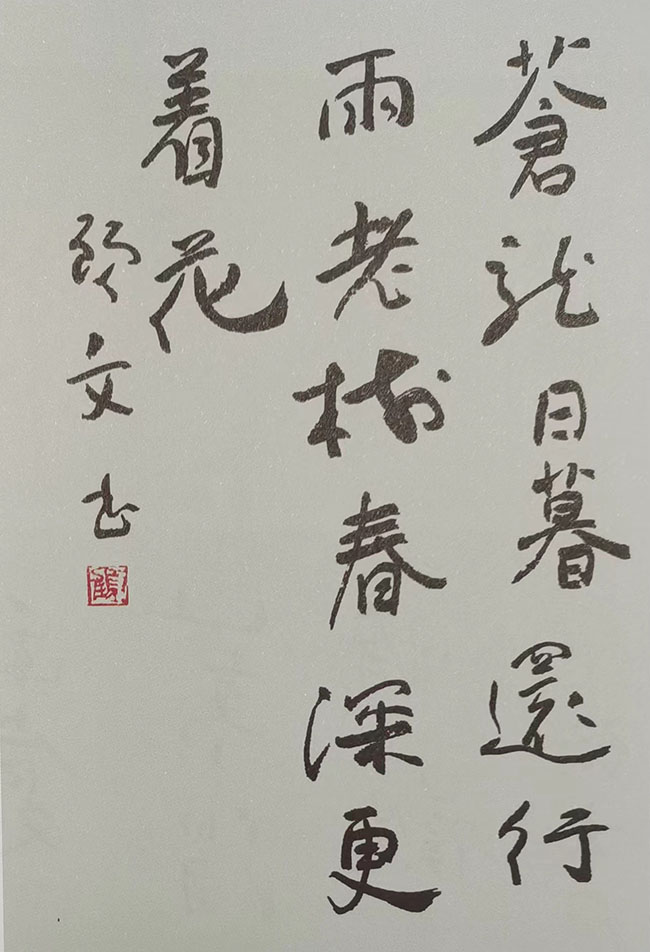 蒼龍日暮還行
雨老樹春深更
着花
文書